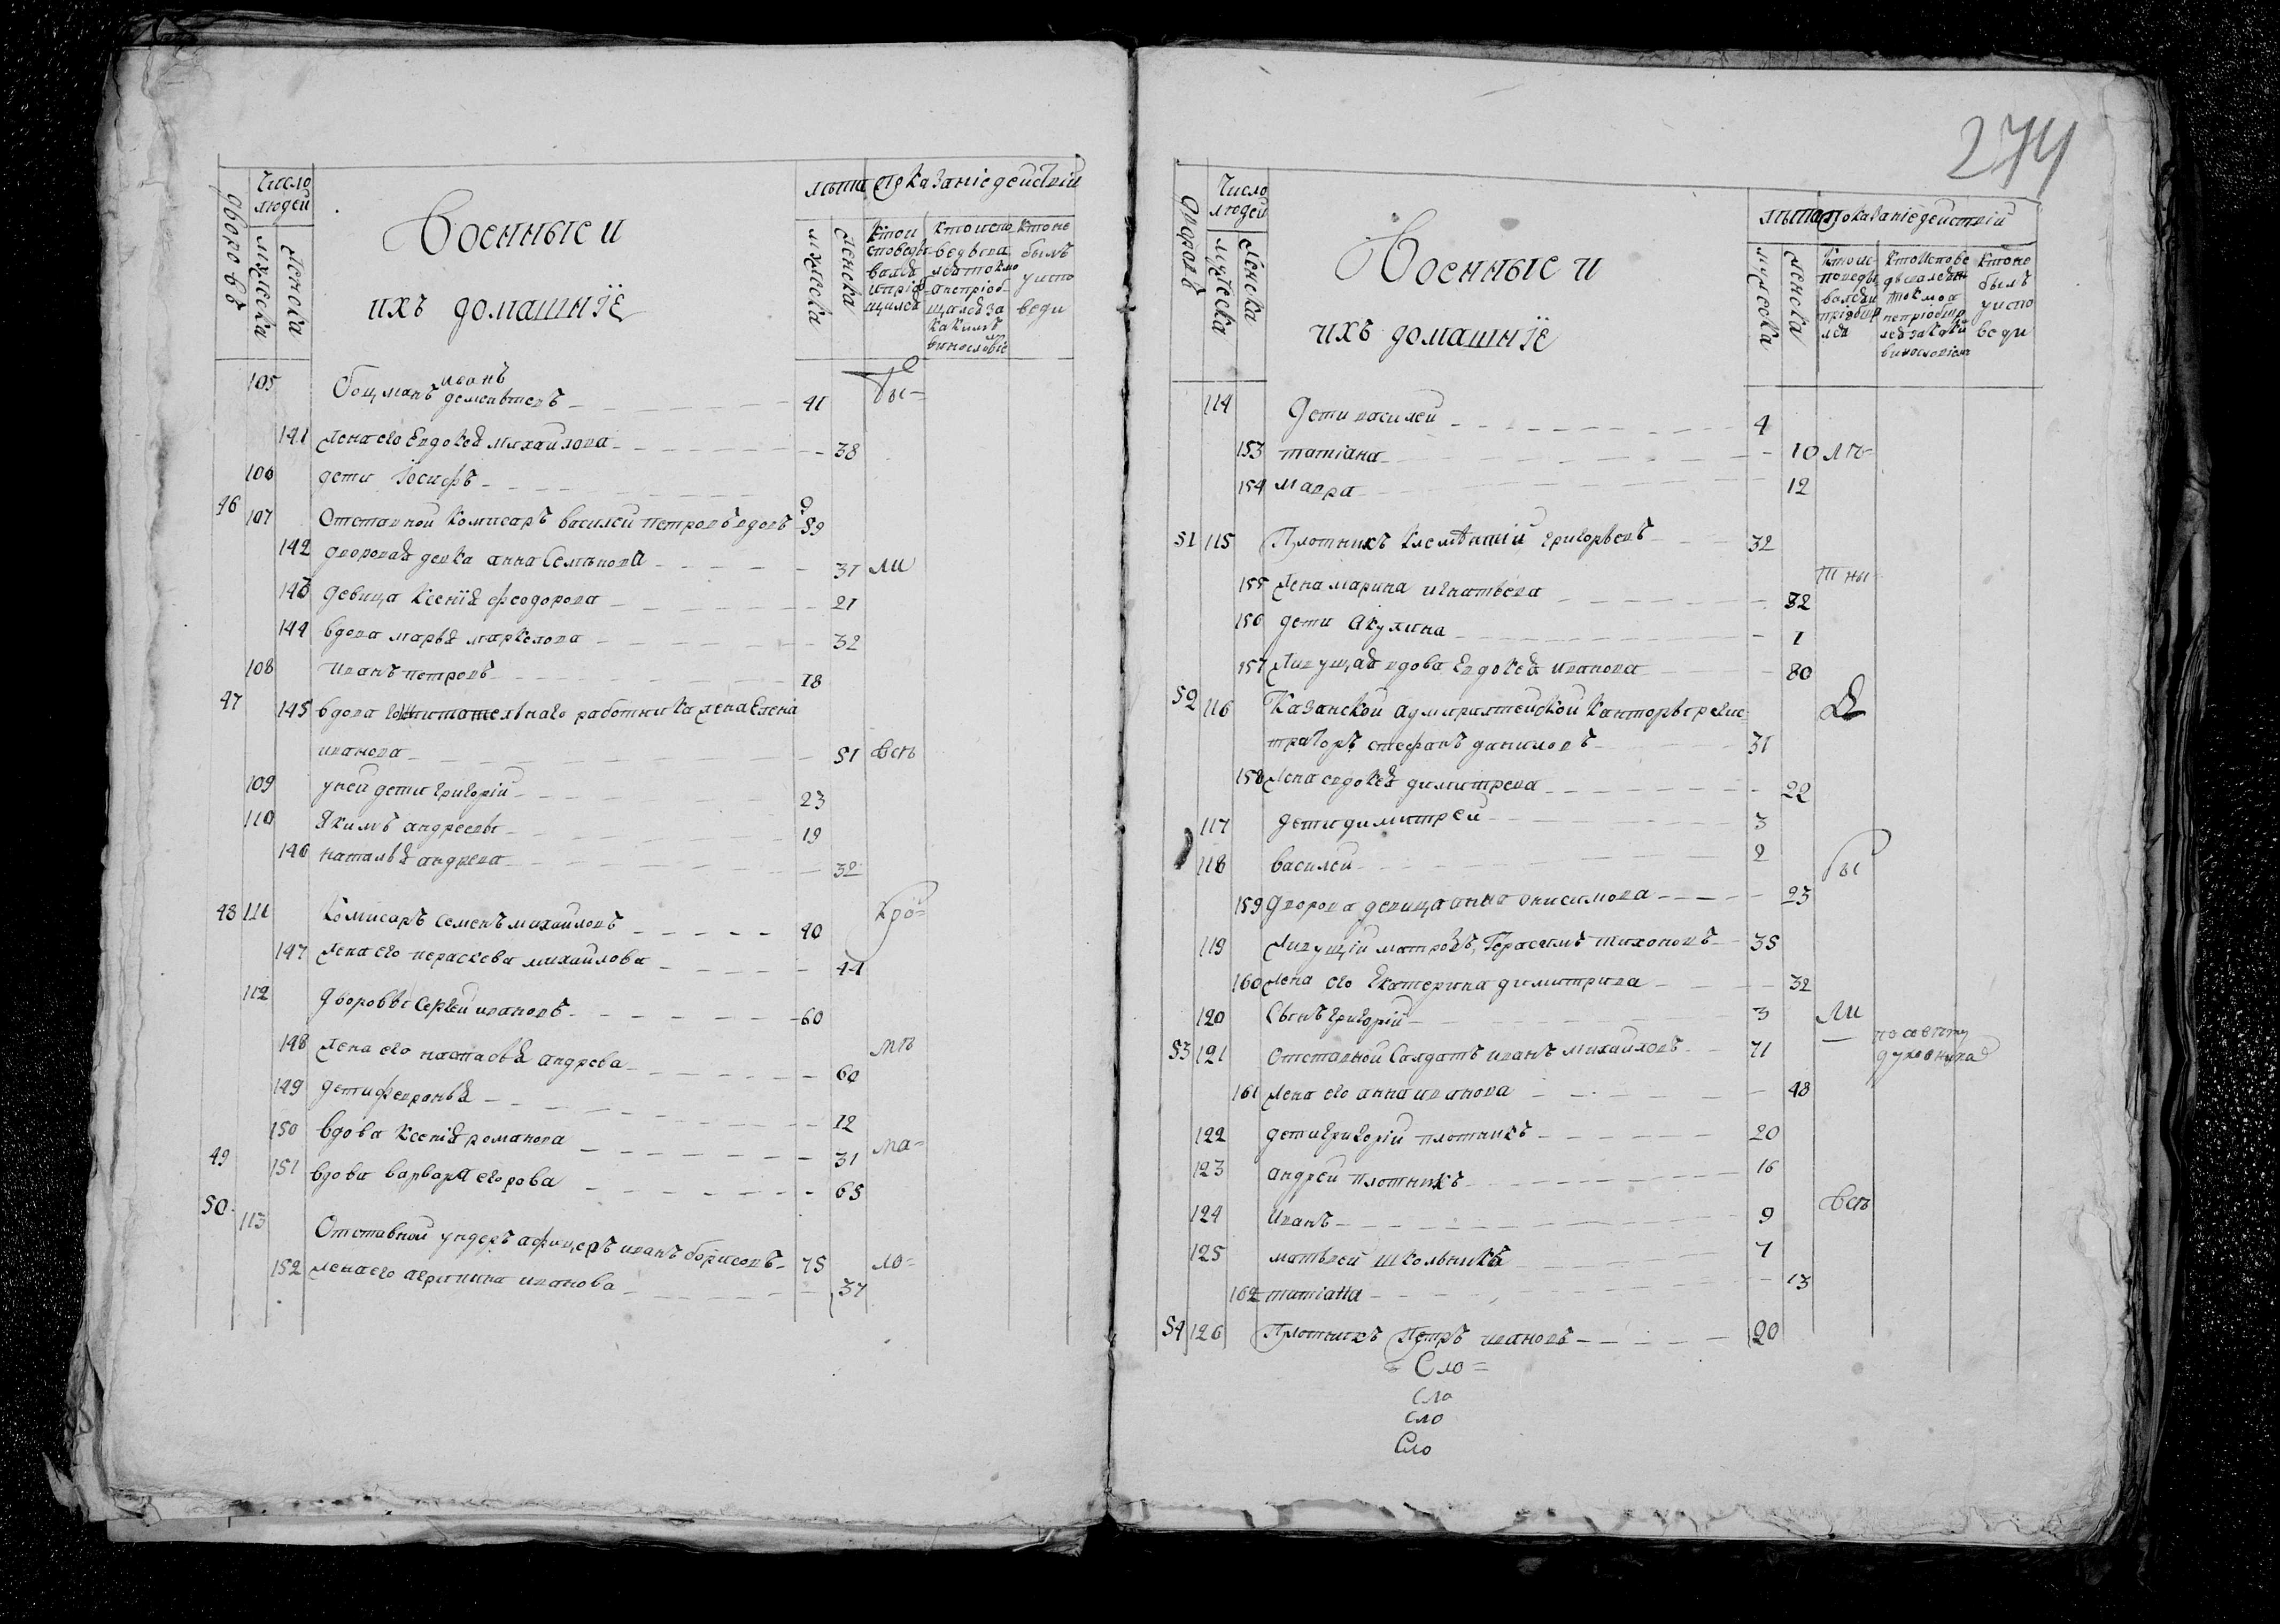 дворовъ
Число людей
мужеска
женска
Военные и
ихъ домашнїе
лѣта
показаніе действій
мужеска
женска
кто исповедывался и пріобщился
кто исповедывался токмо а непріобщался за какимъ винословіе
кто не былъ у исповеди
105 Боцманъ иванъ дементьевъ 41 бы=
141 жена его Евдокея михаилова 38
106 дети Іосифъ 9
46 107 Отставной комисаръ василеи петровъ вдовъ 59
142 дворовая девка анна Семенова 31 ли
143 девица Ксенїя феодорова 21
144 вдова марья маркелова 32
108 иванъ петровъ 18
47 145 вдова работника жена Елена
иванова 51 Всѣ
109 у неи дети григоріи 23
110 Якимъ андреевы 19
146 наталья андрева 32
48 111 Комисаръ Семенъ михаиловъ 40 Кро=
147 жена его пераскева михаилова 44
112 Дворовы Сергеи ивановъ 60
148 жена его настасья андрева 60 мѣ
149 дети февронья 12
150 вдова Ксенія романова 31 ма=
49 151 вдова варвара егорова 65
50 113 Отставной ундеръ афицеръ иванъ борисовъ 75 ло=
152 жена его агрипина иванова 37
274
дворовъ
Число людей
мужеска
женска
Военные и
ихъ домашнїе
лѣта
показаніе действій
мужеска
женска
кто исповедывался и пріобщился
кто исповедывался токмо а непріобщился за какимъ винословіемъ
кто не былъ у исповеди
114 Дети василеи 4
153 татіана 10 лѣ=
154 мавра 12
51 115 Плотникъ Клементій григорьевъ 32
155 жена марина игнатьева 32 тны
156 дети акулина 1
157 живущая вдова Евдокея иванова 80
52 116 Казанской адмиралтейской канторы регис
траторъ стефанъ даниловъ 31
158 жена евдокея димитрева 22
117 дети димитреи 3
118 василеи 2 бы
159 дворова девица анна онисимова 23
119 живущіи матрозъ Герасимъ тихоновъ 35
160 жена его Екатерина димитрива 32
120 Сынъ григорій 3 ли
53 121 Отставной Салдатъ иванъ михаиловъ 71 по совету духовника
161 жена его анна иванова 48
122 дети григоріи плотникъ 20
123 андреи плотникъ 16
124 иванъ 9 Всѣ
125 матвеи школьникъ 7
162 татіана 13
54 126 Плотникъ Петръ ивановъ 20
Сло=
сло
сло
Сло